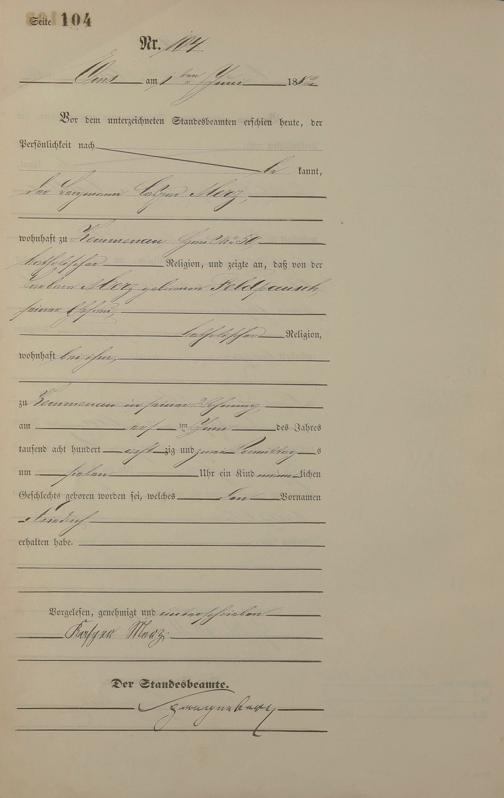 Seite 104
Nr. 104
Ems am 1ten Juni 1882
Vor dem unterzeichneten Standesbeamten erschien heute, der
Persönlichkeit nach
be kannt,
der Bergmann Caspar Merz,
wohnhaft zu Kemmenau
katholischer Religion, und zeigte an, daß von der
Barbara Merz geborenen Feldpausch,
seiner Ehefrau,
katholischer Religion,
wohnhaft bei ihm,
zu Kemmenau in seiner Wohnung,
am im Juni des Jahres
tausend acht hundert acht zig und zwei s
um sieben Uhr ein Kind männ lichen
Geschlechts geboren worden sei, welches den Vornamen
Friedrich
erhalten habe.
Vorgelesen, genehmigt und unterschrieben
Kasper Merz.
Der Standesbeamte.